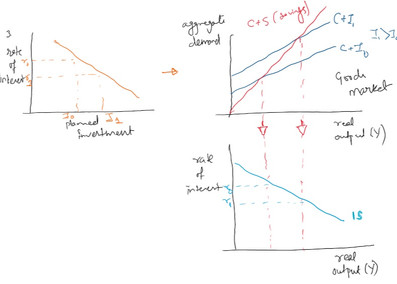 3
rate
of
interest
r₀
r₁
I₀
I₁
planned
Investment
aggregate
demand
C+S (savings)
C+I₁
C+I₀
I₁ > I₀
Goods
market
real
output (Y)
rate
of
interest
r₀
r₁
IS
real
output (Y)